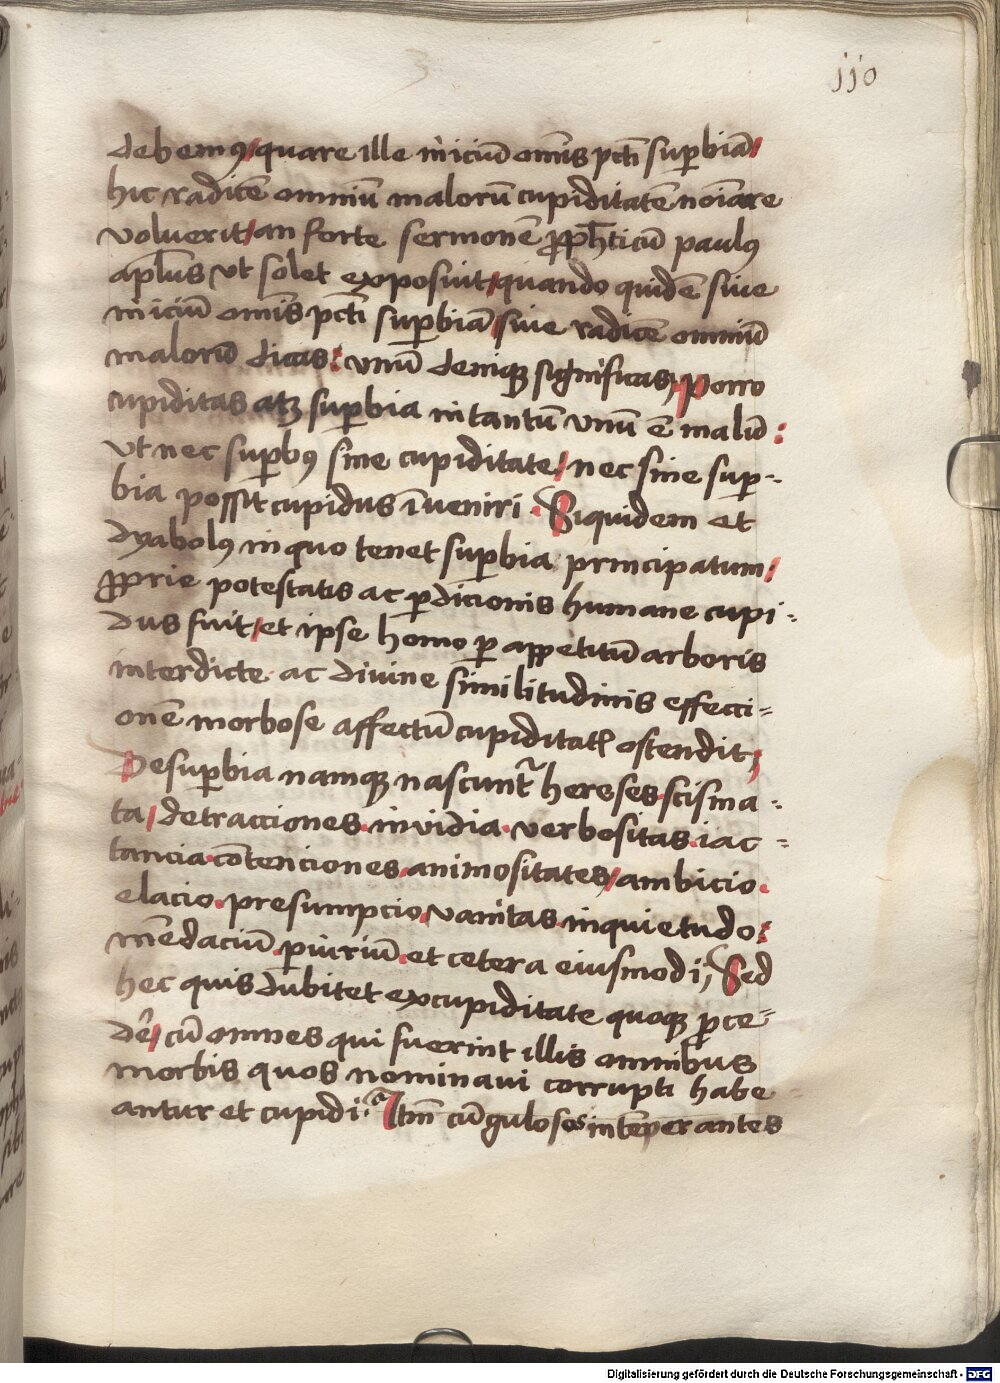 jj0
debemꝯ/quare ille iniciū om̄is pctī suꝑbiā/
hic radicē omniū malorū cupiditatē noīare
voluerit/an forte sermonē ꝓph̄ticū paulꝯ
apl̄us vt solet exposuit/quando quidē siue
iniciū om̄is pctī suꝑbiā/siue radicē omniū
malorū dicas: vnū deniqꝫ significas/Porro
cupiditas atqꝫ suꝑbia in tantū vnū ē malū:
vt nec suꝑbꝯ sine cupiditate/nec sine suꝑ-
bia possit cupidus īueniri. Siquidem et
dyabolꝯ in quo tenet suꝑbia principatum/
ꝓprie potestatis ac ꝑdicionis humane cupi-
dus fuit/et ipse homo ꝑ appetitū arboris
interdicte. ac diuine similitudinis effecci-
onē morbose affectū cupiditatꝭ ostendit/
De suꝑbia namqꝫ nascunt᷑ hereses.scisma-
ta/detracciones.inuidia.verbositas.iac-
tancia.cōtenciones.animositates/ambicio.
elacio.presumpcio.vanitas.inquietudo:
mēdaciū.ꝑiuriū.et cetera eiusmodi; Sed
hec quis dubitet ex cupiditate quoqꝫ ꝓce-
dē/cū omnes qui fuerint illis omnibus
morbis quos nominaui corrupti habe-
antur et cupidi. Itm̄ cū gulosos intēperantes
Digitalisierung gefördert durch die Deutsche Forschungsgemeinschaft - DFG